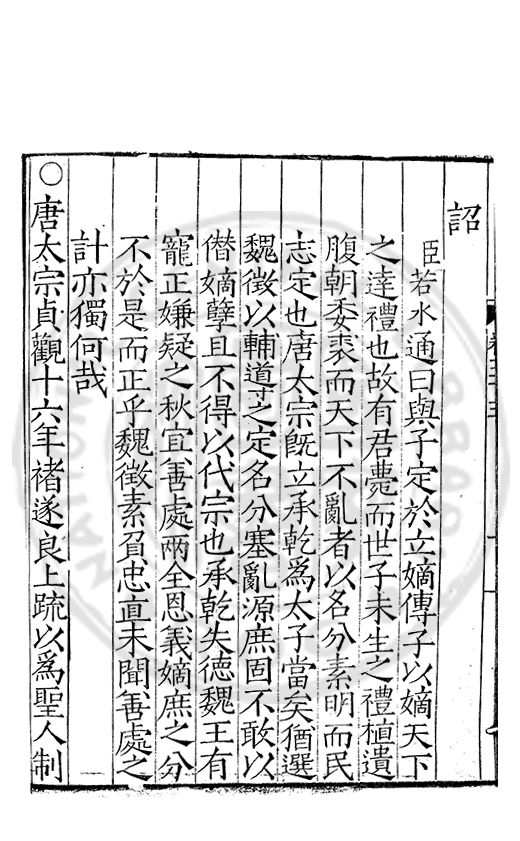 詔
臣若水通曰與子定於立嫡傳子以嫡天下
之達禮也故有君薨而世子未生之禮植遺
腹朝委裘而天下不亂者以名分素明而民
志定也唐太宗旣立承乾爲太子當矣猶選
魏徵以輔道之定名分塞亂源庶固不敢以
僣嫡孽且不得以代宗也承乾失德魏王有
寵正嫌疑之秋宜善處兩全恩義嫡庶之分
不於是而正乎魏徵素負忠直未聞善處之
計亦獨何哉
○唐太宗貞觀十六年褚遂良上疏以爲聖人制